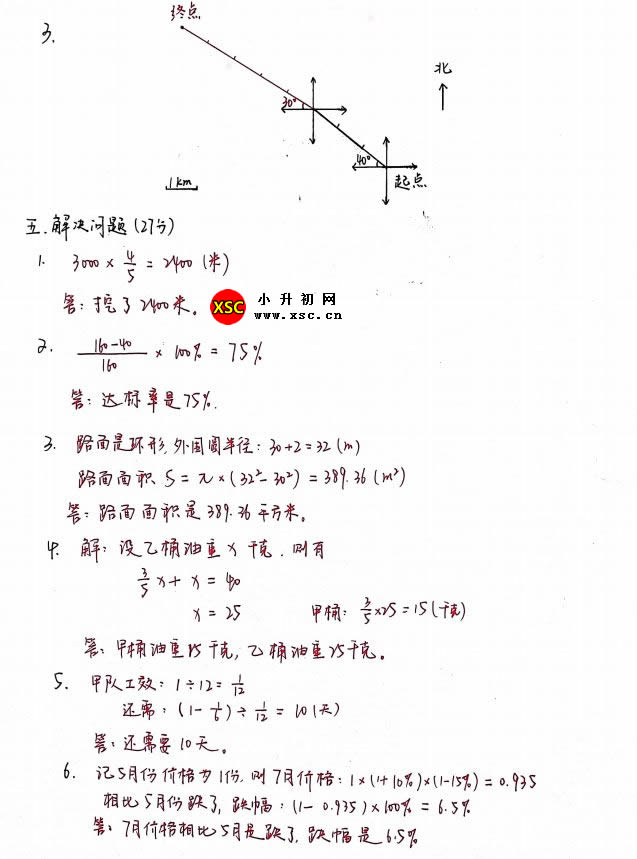 3.
终点
北
30°
40°
起点
1km
五.解决问题(27分)
1. 3000 × 4/5 = 2400 (米)
答:挖了2400米。
XSC 小升初网
www.xsc.cn
2. (160-40)/160 × 100% = 75%
答:达标率是75%.
3. 路面是环形,外围圆半径:30+2=32(m)
路面面积 S = π×(32²-30²) = 389.36 (m²)
答:路面面积是389.36平方米。
4. 解:设乙桶油重x千克.则有
3/5 x + x = 40
x = 25 甲桶:3/5×25=15(千克)
答:甲桶油重15千克,乙桶油重25千克。
5. 甲队工效:1÷12=1/12
还需:(1-1/6)÷1/12 = 10(天)
答:还需要10天。
6. 记5月份价格为1份,则7月价格:1×(1+10%)×(1-15%)=0.935
相比5月份跌了,跌幅:(1-0.935)×100% = 6.5%
答:7月价格相比5月是跌了,跌幅是6.5%